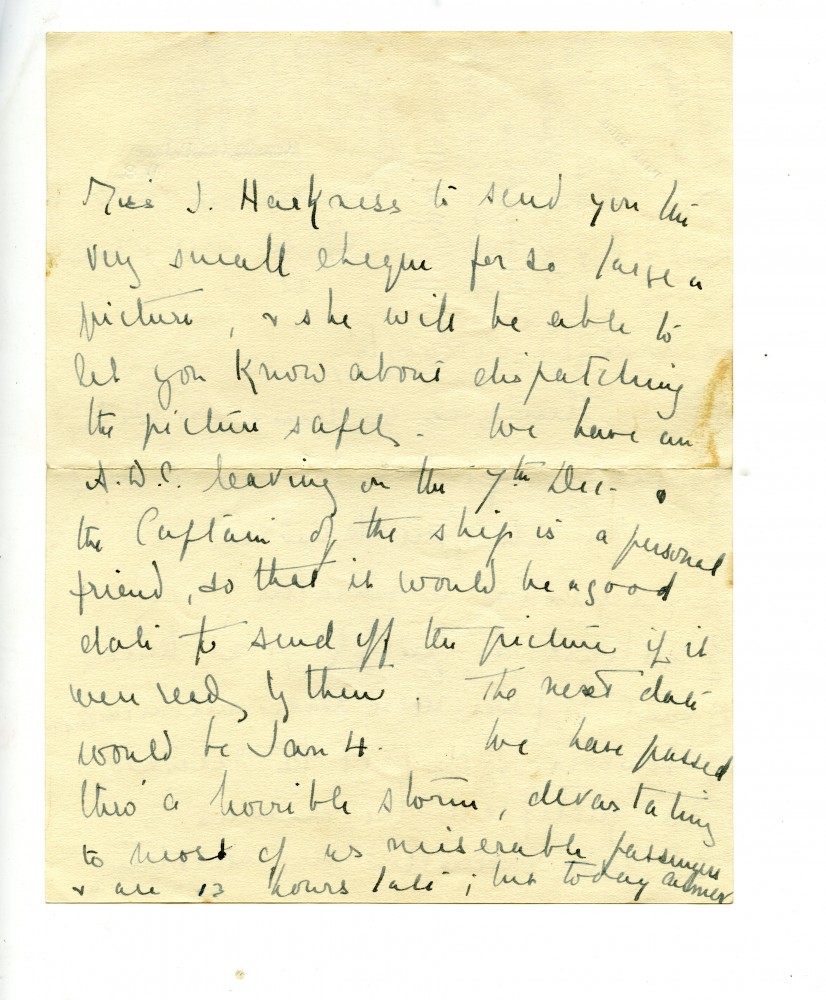 Miss J. Harkness to send you this
very small cheque for so large a
picture, & she will be able to
let you know about dispatching
the picture safely. We have an
A.D.C. leaving on the 7th Dec. &
the Captain of the ship is a personal
friend, so that it would be a good
date to send off the picture if it
were ready by then. The next date
would be Jan 4. We have passed
thro' a horrible storm, devastating
to most of us miserable passengers
& are 12 hours late; but today calmer